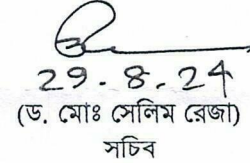 29-8-24
(ড. মোঃ সেলিম রেজা)
সচিব